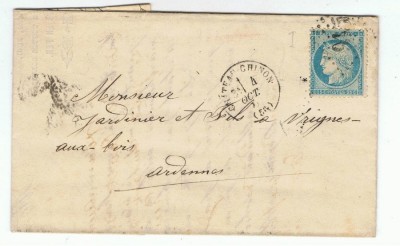 CHATEAU-CHINON
4
OCT.
(56)
Monsieur
Jardinier et Fils à Vrignes-
aux-bois
ardennes